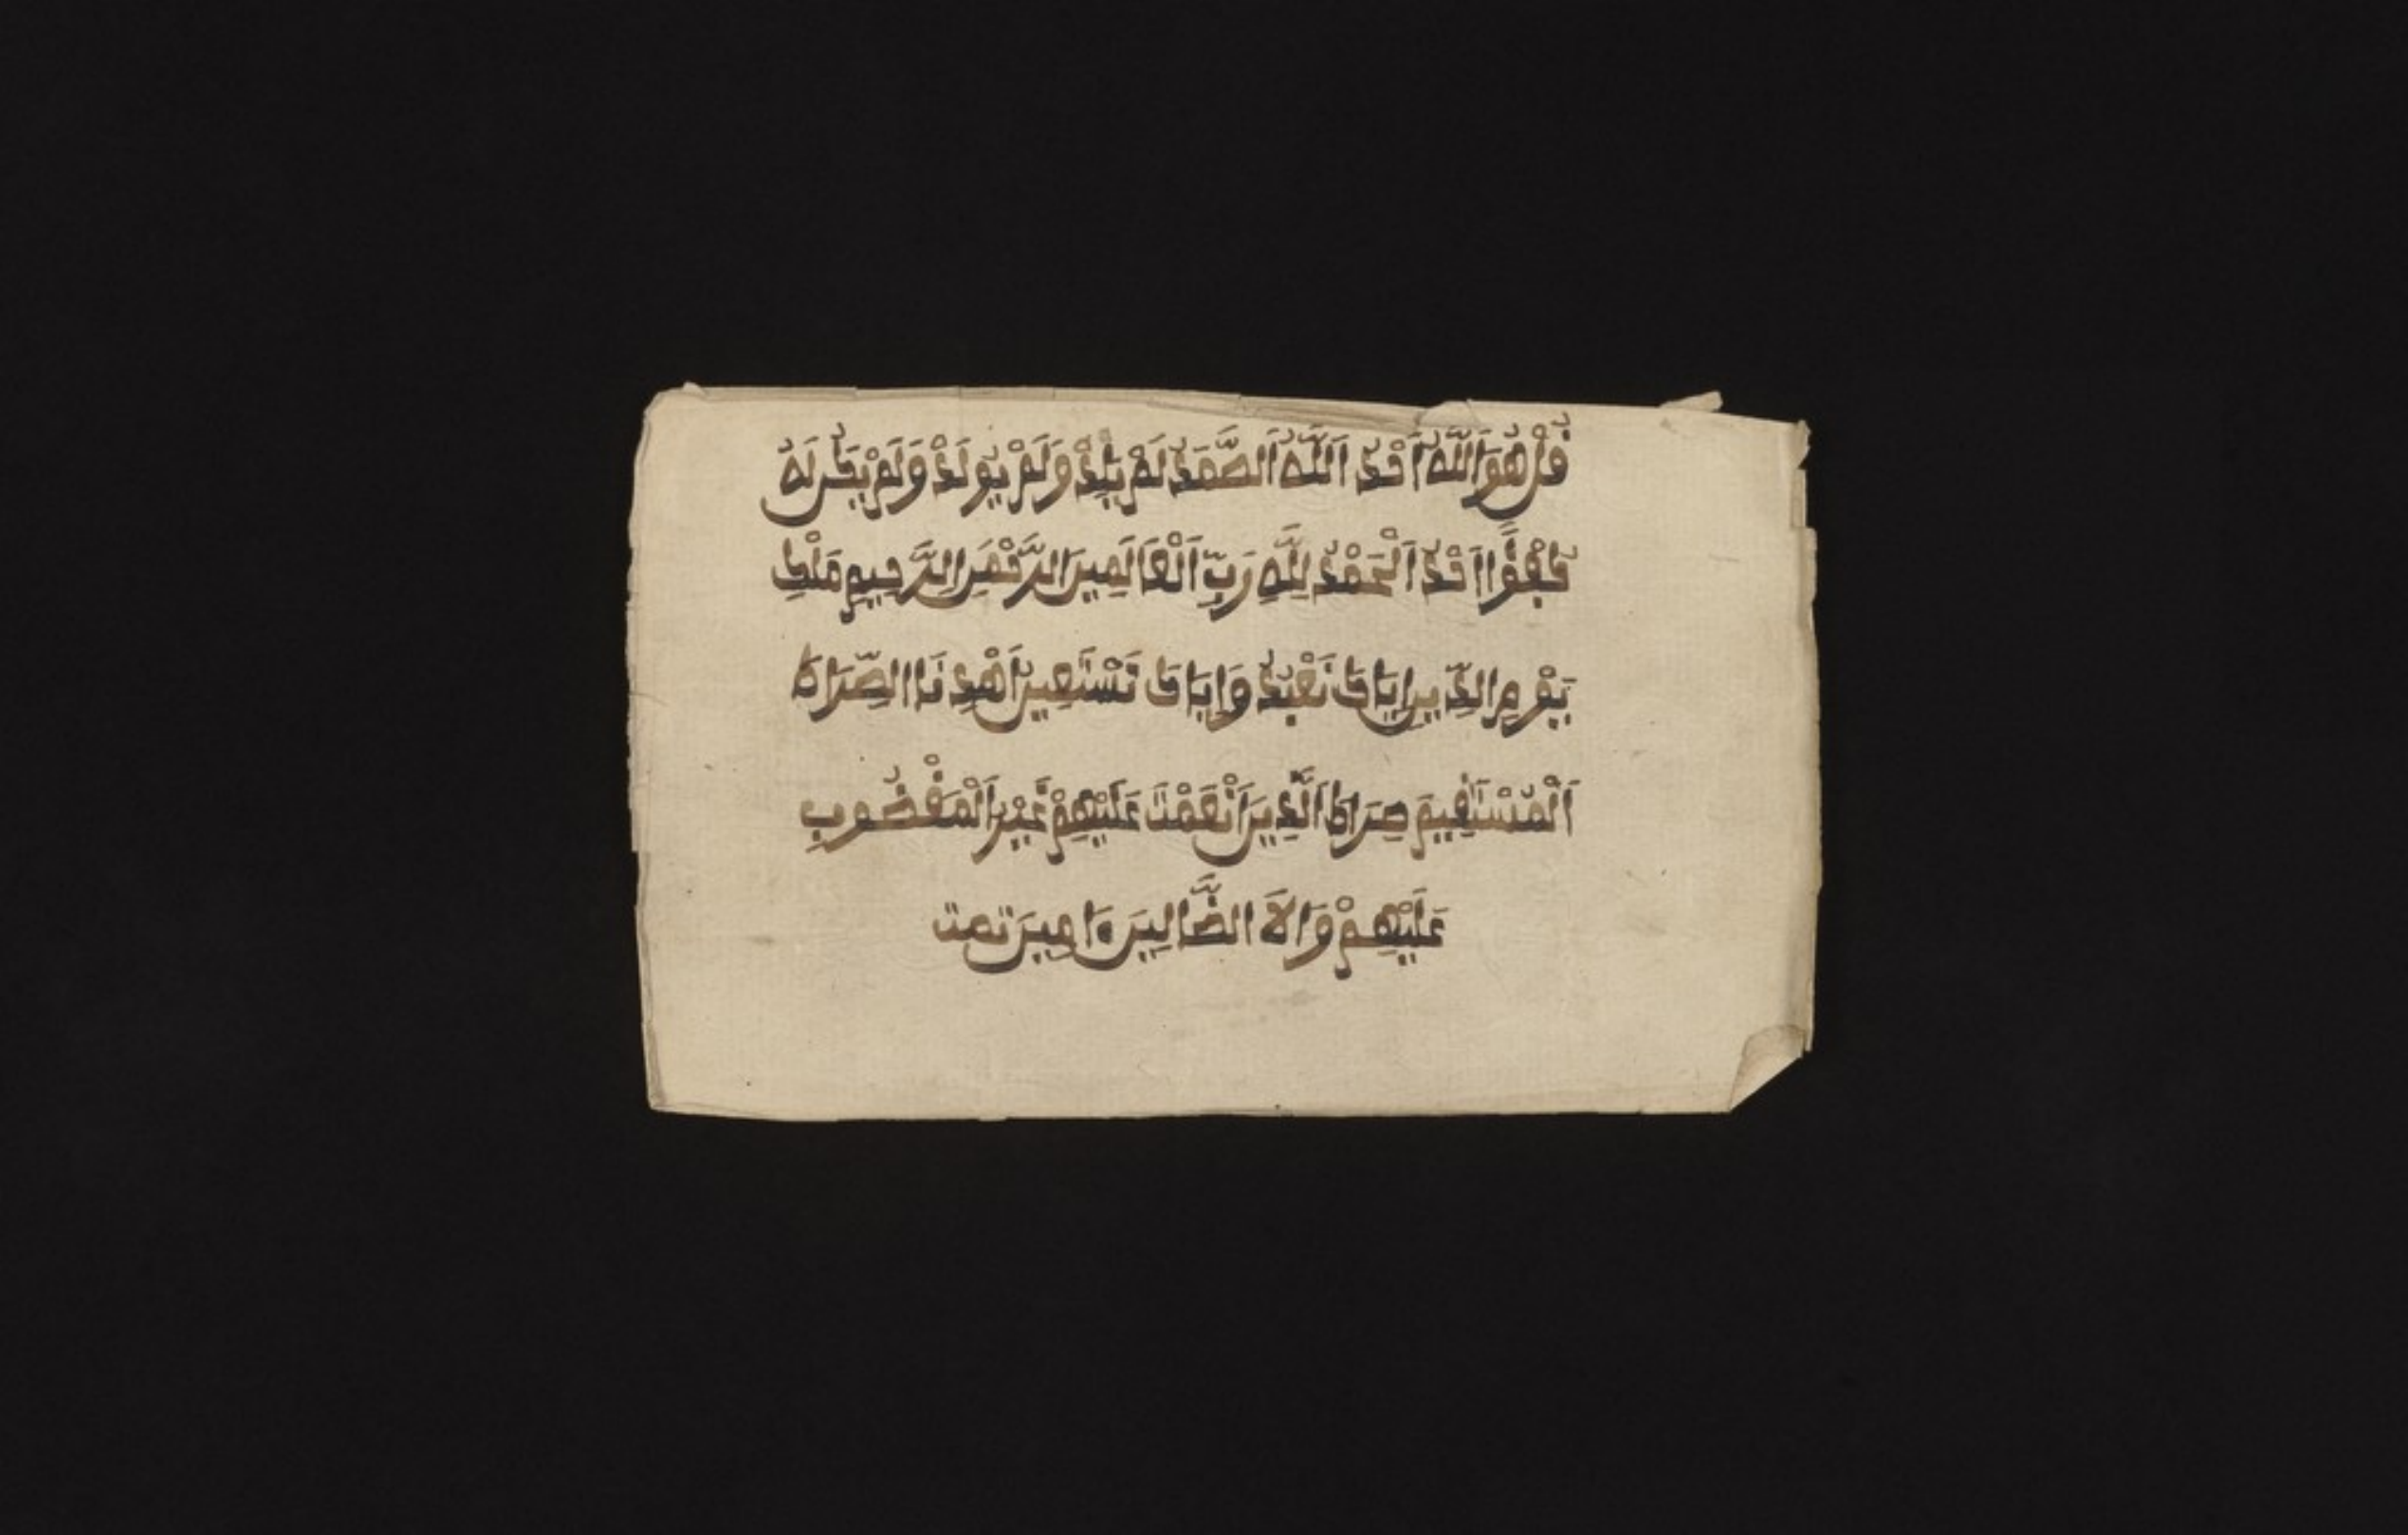 فُلْ هُوَ اَللَّهُ أَحْدُ اَللَّهُ اَلصَّمَدُ لَمْ يَلِدْ وَلَمْ يُولَدْ وَلَمْ يَكُن لَهُ
كُفُؤًا اَحْدُ اَلْحَمْدُ لِلَّهِ رَبِّ اَلْعَالَمِينَ الرَّحْمَنِ الرَّحِيمِ مَلْكِ
يَوْمِ الدِّينِ اِيَاكَ نَعْبُدُ وَاِيَاكَ نَسْتَعِينُ اَهْدِنَا الصِّرَاطَ
اَلْمُسْتَفِيمَ صِرَاطَ اَلَّذِينَ اَنْعَمْتَ عَلَيْهِمْ غَيْرِ اَلْمَغْضُوبِ
عَلَيْهِمْ وَالاَ الضَّالِينَ ءَامِينَ تمت